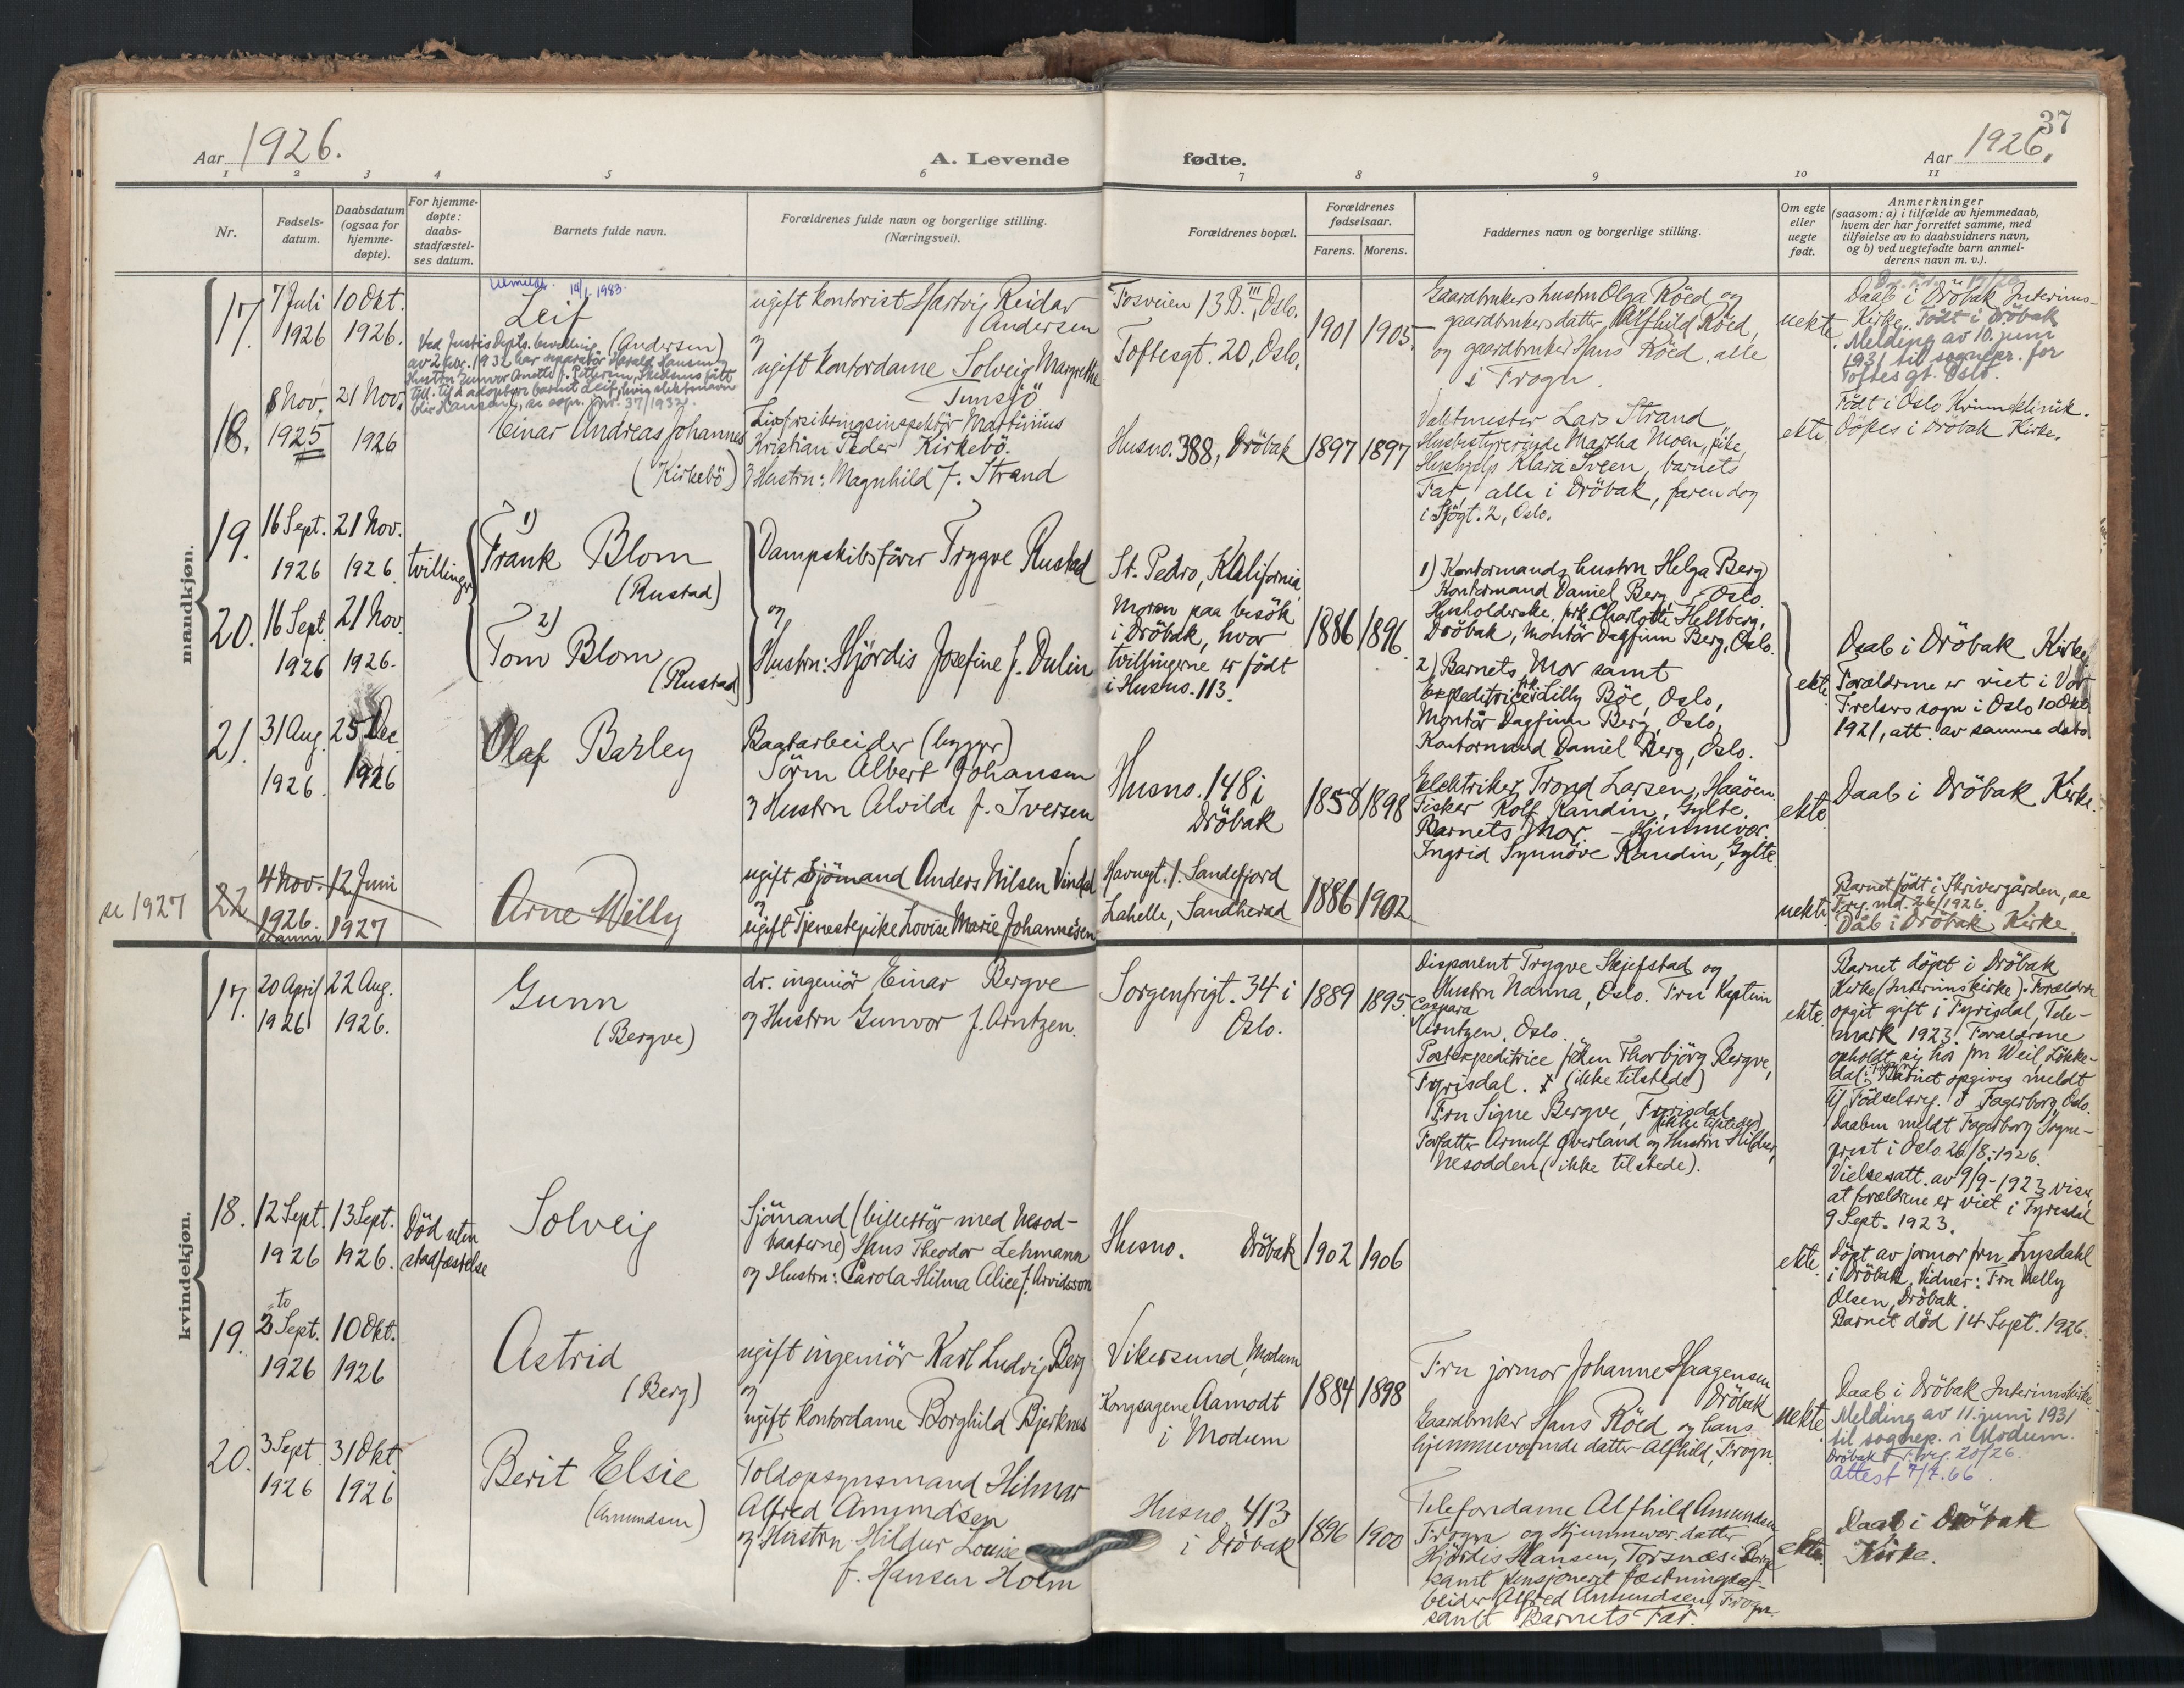 37
Aar 1926.
A. Levende
fødte.
Aar 1926.
1 2 3 4 5 6 7 8 9 10 11
Nr.
Fødsels-
datum.
Daabsdatum
(ogsaa for
hjemme-
døpte).
For hjemme-
døpte:
daabs-
stadfæstel-
ses datum.
Barnets fulde navn.
Forældrenes fulde navn og borgerlige stilling.
(Næringsvei).
Forældrenes bopæl.
Forældrenes
fødselsaar.
Farens. Morens.
Faddernes navn og borgerlige stilling.
Om egte
eller
uegte
født.
Anmerkninger
(saasom: a) i tilfælde av hjemmedaab,
hvem der har forrettet samme, med
tilføielse av to daabsvidners navn,
og b) ved uegtefødte barn anmel-
derens navn m. v.).
mandkjøn.
17.
7 Juli
1926
10 Okt.
1926.
Utmeldt 14/1 1983.
Leif
(Andersen)
Ved Justis Depts. bevilling
av 2 Febr. 1932 har reparatör Harald Hansen og
Hustru Gunvor Anette f. Pettersen, Skedsmo fått
till. til å adoptere barnet Leif, hvis slektsnavn
blir Hansen, se sogn. jnr. 37/1932.
ugift kontorist Hartvig Reidar
Andersen
og
ugift kontordame Solveig Margrethe
Tunsjö
Fosveien 13 B. III, Oslo.
Toftesgt. 20, Oslo.
1901 1905
Gaardbrukers hustru Olga Röed og
gaardbrukers datter Alfhild Röed,
og gaardbruker Hans Röed, alle
i Frogn.
uekte
Daab i Dröbak Interims-
Kirke. Födt i Dröbak
Melding av 10. juni
1931 til sognepr. for
Toftes gt. Oslo.
18.
8 Nov.
1925
21 Nov.
1926
Einar Andreas Johannes
(Kirkebö)
Livsforsikringsinspektör Martinius
Kristian Peder Kirkebö.
og Hustru: Magnhild f. Strand
Husno. 388, Dröbak
1897 1897
Vaktmester Lars Strand,
Husbestyrerinde Martha Moen, pike,
Hushjelp Klara Sveen, barnets
Far, alle i Dröbak, faren dog
i Sjögt. 2, Oslo.
ekte.
Födt i Oslo Kvinneklinik.
Döpes i Dröbak Kirke.
19.
16 Sept.
1926
21 Nov.
1926
tvillinger
1)
Frank Blom
(Rustad)
Dampskibsförer Trygve Rustad
og
Hustru: Hjördis Josefine f. Dulin
St. Pedro, Kalifornia
Moren paa besök
i Dröbak, hvor
tvillingerne er födt
i Husno. 113.
1886 1896
1) Kontormands hustru Helga Berg
Kontormand Daniel Berg, Oslo.
Husholderske, frk. Charlotte Hellberg,
Dröbak, Montör Dagfinn Berg, Oslo.
20.
16 Sept.
1926
21 Nov.
1926.
2)
Tom Blom
(Rustad)
2) Barnets Mor samt
Expeditrice frk. Lilly Böe, Oslo,
Montör Dagfinn Berg, Oslo,
Kontormand Daniel Berg, Oslo.
ekte
Daab i Dröbak Kirke
Forældrene er viet i Vor
Frelsers sogn i Oslo 10 Okt.
1921, att. av samme dato.
21.
31 Aug.
1926.
25 Dec.
1926
Olaf Barley
Bagarbeider (bygger)
Sören Albert Johansen
og Hustru Alvilde f. Iversen
Husno. 148 i
Dröbak
1858 1898
Elektriker Trond Larsen, Haaöen.
Fisker Rolf Randin, Gylte.
Barnets Mor. - Hjemmevær.
Ingrid Synnöve Randin, Gylte.
ekte
Daab i Dröbak Kirke.
se 1927
22
4 Nov.
1926.
12 Juni
1927
Arne Willy
ugift Sjömand Anders Nilsen Vindal
og
ugift Tjenestepike Lovise Marie Johannesen
Havnegt. 1. Sandefjord
Lahelle, Sandherad
1886 1902
uekte.
Barnet födt i Skrivergården, se
Frg. md. 26/1926.
Dåb i Dröbak Kirke.
kvindekjøn.
17.
20 April
1926
22 Aug.
1926.
Gunn
(Bergve)
dr. ingeniör Einar Bergve
og Hustru Gunvor f. Arntzen.
Sorgenfrigt. 34 i
Oslo.
1889 1895.
Disponent Trygve Skjefstad og
Hustru Nanna, Oslo. Fru Kaptein
Caspara
Arntzen, Oslo.
Postexpeditrice fröken Thorbjörg Bergve,
Fyrisdal. (ikke tilstede)
Fru Signe Bergve, Fyrisdal
(ikke tilstede)
Forfatter Arnulf Överland og Hustru Hildur,
Nesodden (ikke tilstede).
ekte.
Barnet döpt i Dröbak
Kirke (Interimskirke). Forældrene
opgit gift i Fyrisdal, Tele-
mark 1923. Forældrene
opholdt sig hos fru Weil, Lökke-
dal. Barnet opgives meldt
til Födselsreg. i Fagerborg, Oslo.
Daaben meldt Fagerborg Sogne-
prest i Oslo 26/8.-1926.
Vielsesatt. av 9/9-1923 viser,
at forældrene er viet i Fyresdal
9 Sept. 1923.
18.
12 Sept.
1926
13 Sept.
1926.
Död uten
stadfæstelse
Solveig
Sjömand (billettör med Nesod-
baaterne) Hans Theodor Lehmann
og Hustru: Carola Hilma Alice f. Arvidsson
Husno. Dröbak
1902 1906
ekte.
Döpt av jormor fru Lysdahl
i Dröbak. Vidner: Fru Nelly
Olsen, Dröbak.
Barnet död 14 Sept. 1926.
19.
to
2 Sept.
1926
10 Okt.
1926
Astrid
(Berg)
ugift ingeniör Karl Ludvig Berg
og
ugift kontordame Borghild Bjerknes
Vikersund, Modum
Kongsagene Aamodt
i Modum
1884 1898
Fru jormor Johanne Haagensen
Dröbak
Gaardbruker Hans Röed og hans
hjemmeværende datter Alfhild, Frogn.
uekte.
Daab i Dröbak Interimskirke.
Melding av 11. juni 1931
til sognepr. i Modum.
Dröbak F.reg. 20/26.
Attest 7/7.66.
20.
3 Sept.
1926
31 Okt
1926
Berit Elsie
(Amundsen)
Toldopsynsmand Hilmar
Alfred Amundsen
og Hustru Hildur Louise
f. Hansen Holm
Husno. 413
i Dröbak
1896 1900
Telefondame Alfhild Amundsen
Frogn og Hjemmevær. datter
Hjördis Hansen, Torsnæs i Borge
samt pensjonert fæstningsar-
beider Alfred Amundsen, Frogn
samt Barnets Far.
ekte.
Daab i Dröbak
Kirke.